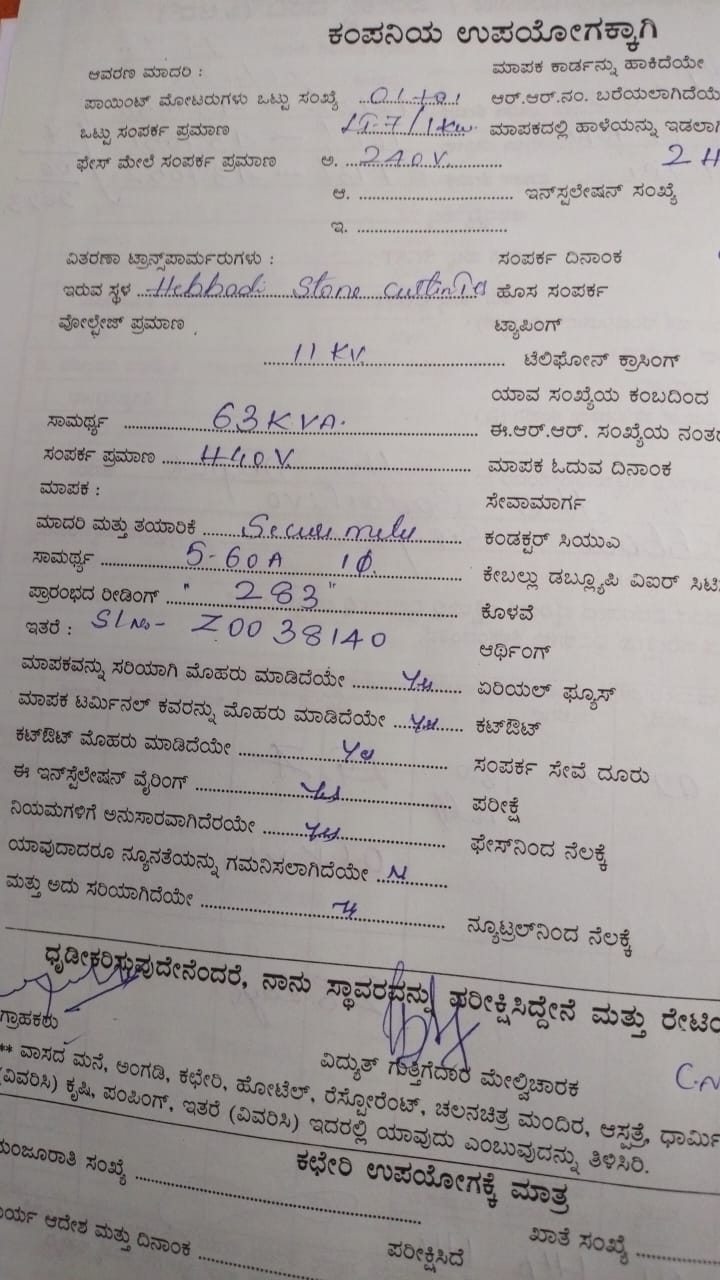 ಕಂಪನಿಯ ಉಪಯೋಗಕ್ಕಾಗಿ
ಆವರಣ ಮಾದರಿ : ಮಾಪಕ ಕಾರ್ಡನ್ನು ಹಾಕಿದೆಯೇ
ಪಾಯಿಂಟ್ ಮೋಟರುಗಳು ಒಟ್ಟು ಸಂಖ್ಯೆ ಆರ್.ಆರ್.ನಂ. ಬರೆಯಲಾಗಿದೆಯೆ
ಒಟ್ಟು ಸಂಪರ್ಕ ಪ್ರಮಾಣ 1Kw. ಮಾಪಕದಲ್ಲಿ ಹಾಳೆಯನ್ನು
ಫೇಸ್ ಮೇಲೆ ಸಂಪರ್ಕ ಪ್ರಮಾಣ ಅ. 240V. 2 H
ಆ. ಇನ್‌ಸ್ಪಲೇಷನ್ ಸಂಖ್ಯೆ
ಇ.
ವಿತರಣಾ ಟ್ರಾನ್ಸ್‌ಪಾರ್ಮರುಗಳು : ಸಂಪರ್ಕ ದಿನಾಂಕ
ಇರುವ ಸ್ಥಳ Hebbadi Stone ಹೊಸ ಸಂಪರ್ಕ
ವೋಲ್ಟೇಜ್ ಪ್ರಮಾಣ ಟ್ಯಾಪಿಂಗ್
11 KV ಟೆಲಿಫೋನ್ ಕ್ರಾಸಿಂಗ್
ಯಾವ ಸಂಖ್ಯೆಯ ಕಂಬದಿಂದ
ಸಾಮರ್ಥ್ಯ 63 KVA. ಈ.ಆರ್.ಆರ್. ಸಂಖ್ಯೆಯ
ಸಂಪರ್ಕ ಪ್ರಮಾಣ 440V. ಮಾಪಕ ಓದುವ ದಿನಾಂಕ
ಮಾಪಕ : ಸೇವಾಮಾರ್ಗ
ಮಾದರಿ ಮತ್ತು ತಯಾರಿಕೆ ಕಂಡಕ್ಟರ್ ಸಿಯುವಿ
ಸಾಮರ್ಥ್ಯ 5-60A 1Φ. ಕೇಬಲ್ಲು ಡಬ್ಲ್ಯೂಪಿ ವಿಐರ್
ಪ್ರಾರಂಭದ ರೀಡಿಂಗ್ " 283 " ಕೊಳವೆ
ಇತರೆ : Sl No- Z0038140 ಆರ್ಥಿಂಗ್
ಮಾಪಕವನ್ನು ಸರಿಯಾಗಿ ಮೊಹರು ಮಾಡಿದೆಯೇ Yes ಏರಿಯಲ್ ಫ್ಯೂಸ್
ಮಾಪಕ ಟರ್ಮಿನಲ್ ಕವರನ್ನು ಮೊಹರು ಮಾಡಿದೆಯೇ Yes ಕಟ್‌ಔಟ್
ಕಟ್‌ಔಟ್ ಮೊಹರು ಮಾಡಿದೆಯೇ Yes ಸಂಪರ್ಕ ಸೇವೆ ದೂರು
ಈ ಇನ್‌ಸ್ಪೆಲೇಷನ್ ವೈರಿಂಗ್ Yes ಪರೀಕ್ಷೆ
ನಿಯಮಗಳಿಗೆ ಅನುಸಾರವಾಗಿದೆರಯೇ Yes ಫೇಸ್‌ನಿಂದ ನೆಲಕ್ಕೆ
ಯಾವುದಾದರೂ ನ್ಯೂನತೆಯನ್ನು ಗಮನಿಸಲಾಗಿದೆಯೇ
ಮತ್ತು ಅದು ಸರಿಯಾಗಿದೆಯೇ ನ್ಯೂಟ್ರಲ್‌ನಿಂದ ನೆಲಕ್ಕೆ
ಧೃಡೀಕರಿಸುವುದೇನೆಂದರೆ, ನಾನು ಸ್ಥಾವರವನ್ನು ಪರೀಕ್ಷಿಸಿದ್ದೇನೆ ಮತ್ತು
ಗ್ರಾಹಕರು ವಿದ್ಯುತ್ ಗುತ್ತಿಗೆದಾರ ಮೇಲ್ವಿಚಾರಕ
** ವಾಸದ ಮನೆ, ಅಂಗಡಿ, ಕಛೇರಿ, ಹೋಟೆಲ್, ರೆಸ್ಟೋರೆಂಟ್, ಚಲನಚಿತ್ರ ಮಂದಿರ, ಆಸ್ಪತ್ರೆ,
(ವಿವರಿಸಿ) ಕೃಷಿ, ಪಂಪಿಂಗ್, ಇತರೆ (ವಿವರಿಸಿ) ಇದರಲ್ಲಿ ಯಾವುದು ಎಂಬುವುದನ್ನು ತಿಳಿಸಿರಿ.
ಕಛೇರಿ ಉಪಯೋಗಕ್ಕೆ ಮಾತ್ರ
ಮಂಜೂರಾತಿ ಸಂಖ್ಯೆ ಖಾತೆ ಸಂಖ್ಯೆ
ಆದೇಶ ಮತ್ತು ದಿನಾಂಕ ಪರೀಕ್ಷಿಸಿದೆ